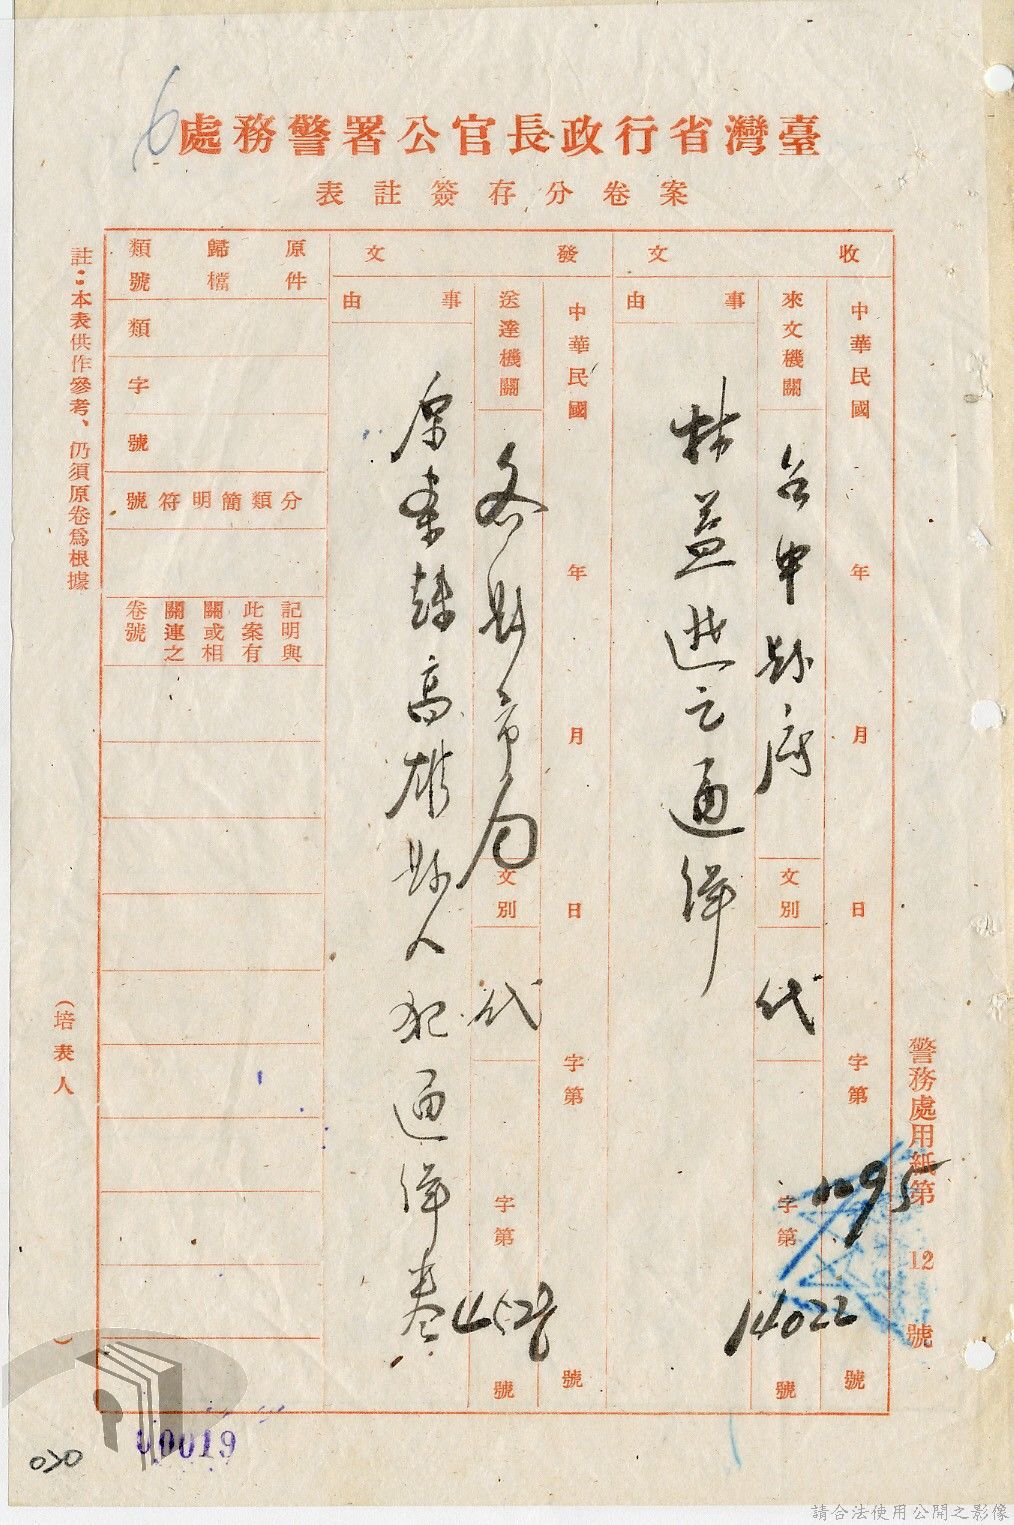 臺灣省行政長官公署警務處
案卷分存簽註表
收文
中華民國 年 月 日 字第 號
來文機關
台中縣府
文別
代
字第 14022 號
事由
林益遜之通緝
發文
中華民國 年 月 日 字第 號
送達機關
各縣市局
文別
代
字第 號
事由
原案歸高雄縣人犯通緝卷
原件歸檔類號
類
字
號
分類簡明符號
記明與此案有關或相關連之卷號
註：本表供作參考、仍須原卷為根據
（培表人 ）
警務處用紙第12號
6
00019
請合法使用公開之影像